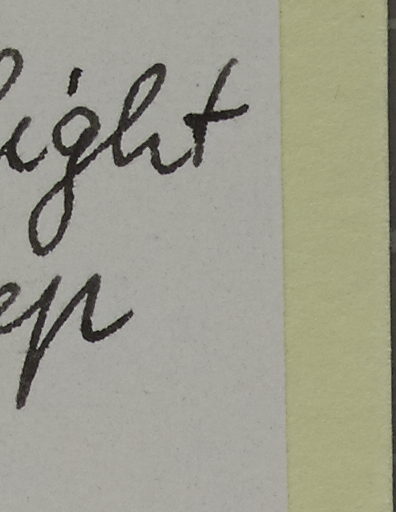 light
ep